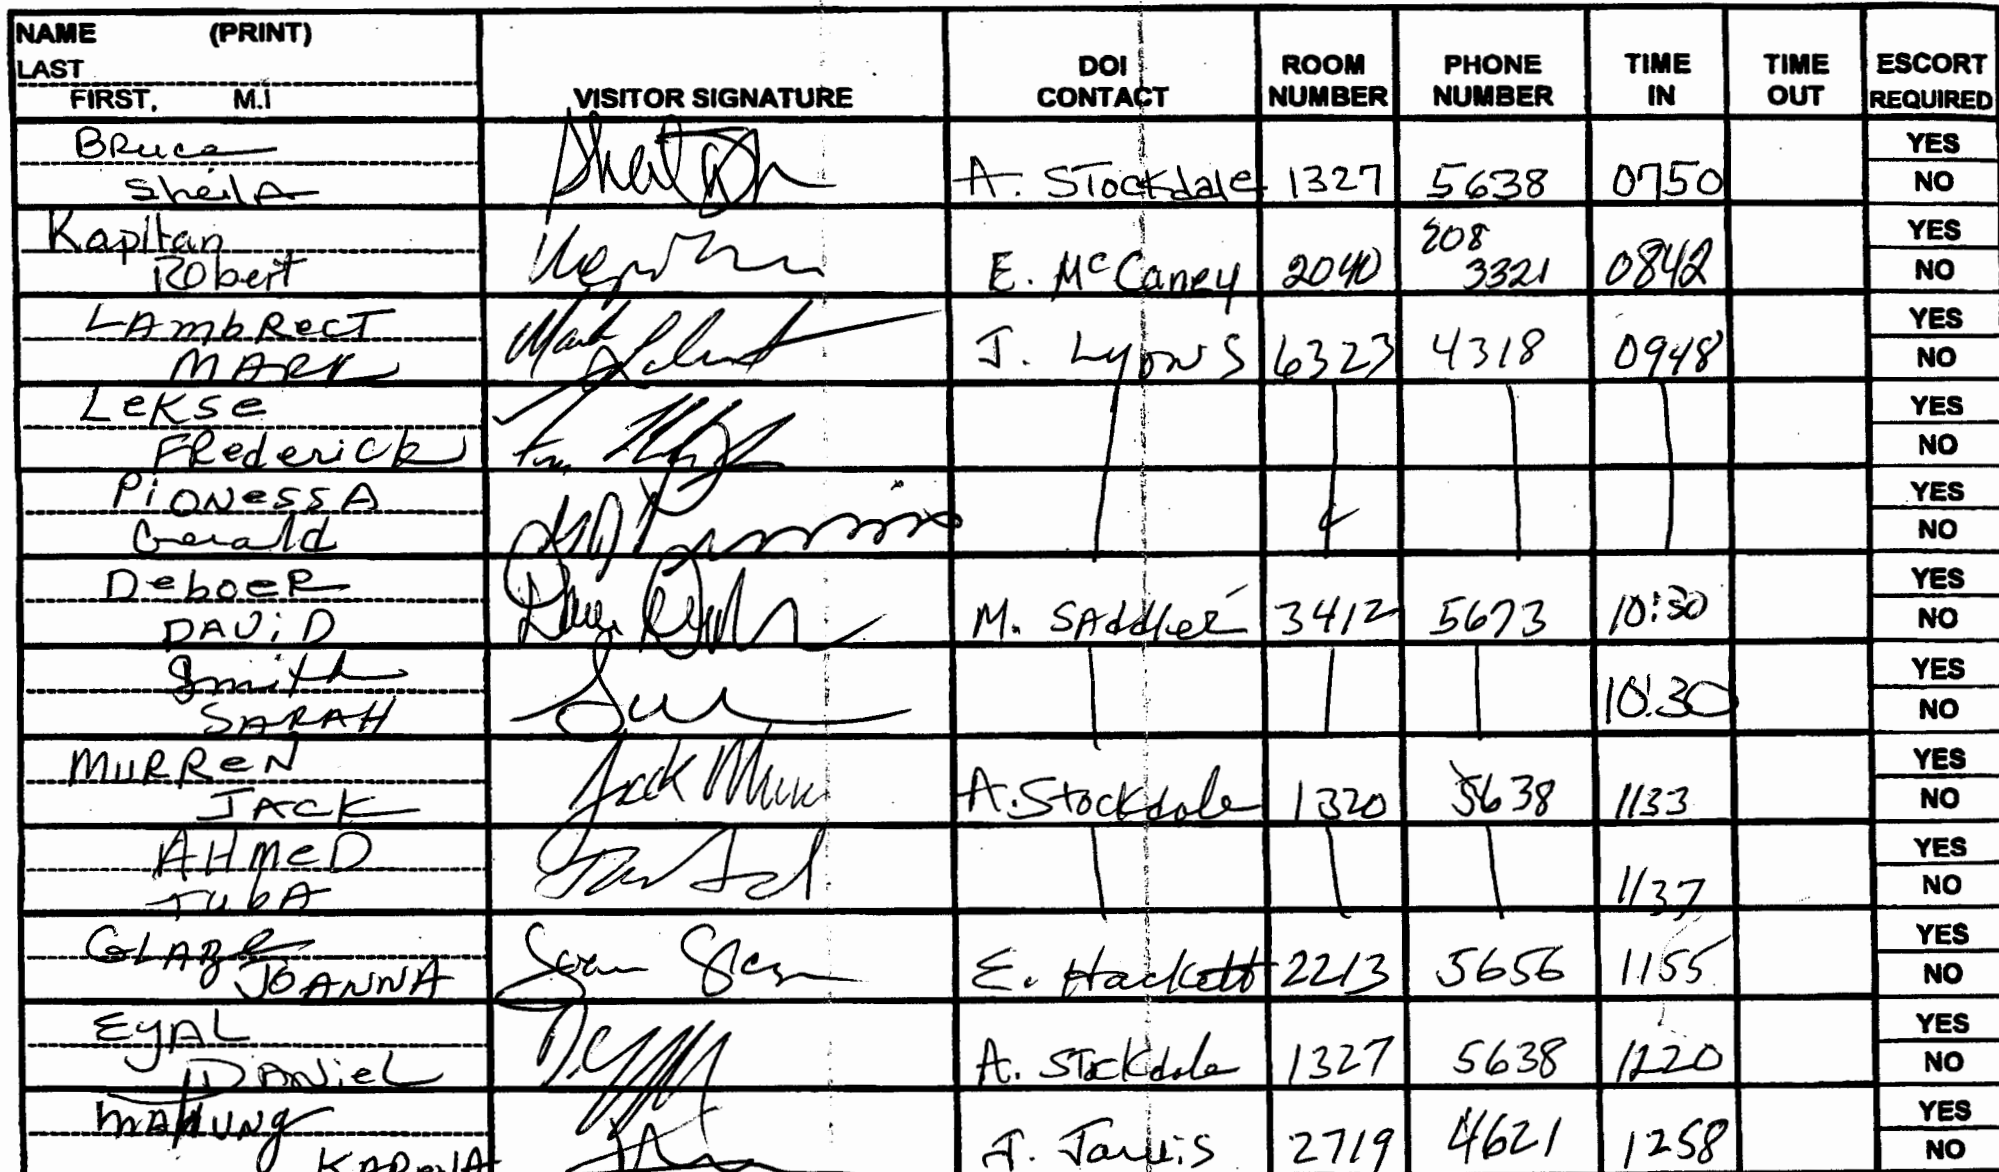 NAME (PRINT)
LAST
FIRST, M.I
VISITOR SIGNATURE
DOI CONTACT
ROOM NUMBER
PHONE NUMBER
TIME IN
TIME OUT
ESCORT REQUIRED
Bruce
SheilA
A. Stockdale 1327 5638 0750
YES
NO
Kapitan
Robert
E. McCaney 2040 208 3321 0842
YES
NO
LAmbRecT
MARK
Mark
J. Lyons 6323 4318 0948
YES
NO
LeKse
FRederick
YES
NO
PiONessA
Gerald
YES
NO
DeboeR
DAViD
M. SAddler 3412 5673 10:30
YES
NO
Smith
SARAH
10:30
YES
NO
MURReN
JACK
Jack
A. Stockdale 1320 5638 1133
YES
NO
AHmeD
TubA
1137
YES
NO
JOANNA
E. Hackett 2213 5656 1155
YES
NO
EyAL
DANieL
A. Stockdale 1327 5638 1220
YES
NO
J. Jarvis 2719 4621 1258
YES
NO